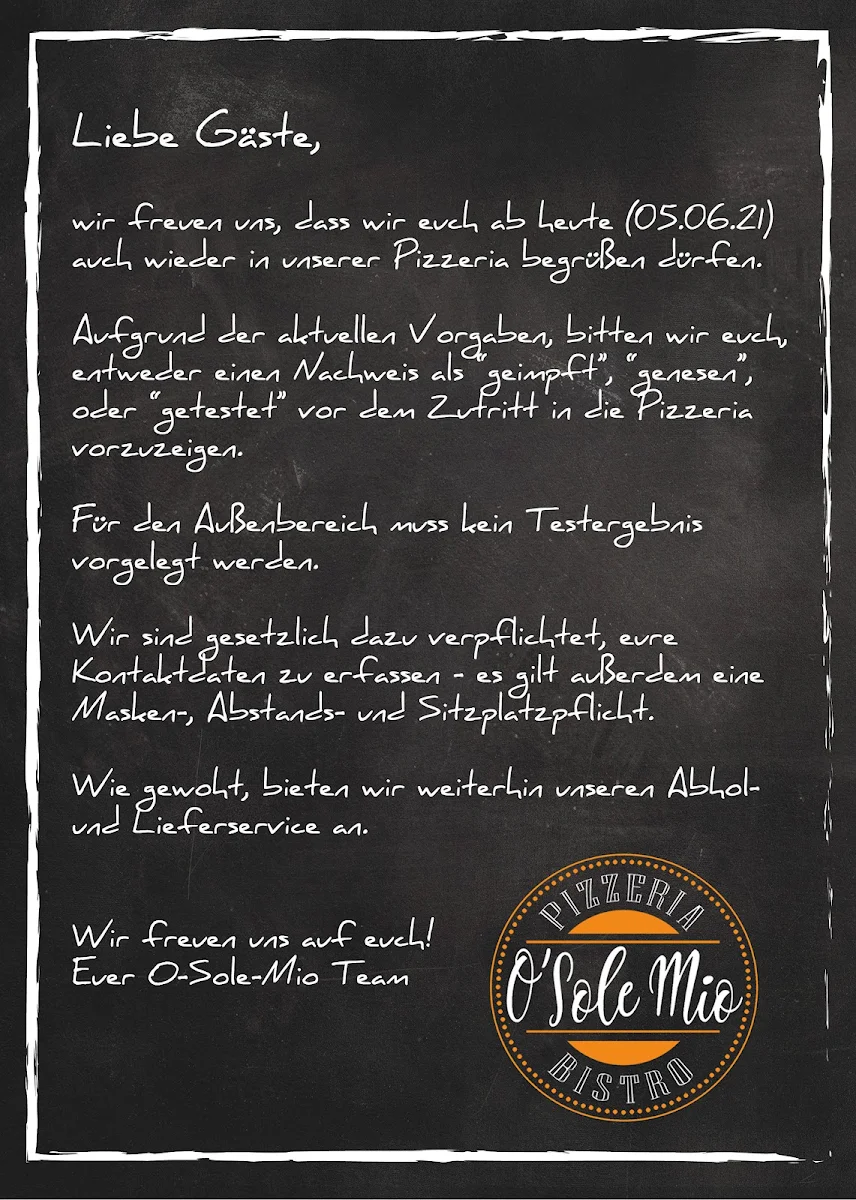 Liebe Gäste,
wir freuen uns, dass wir euch ab heute (05.06.21)
auch wieder in unserer Pizzeria begrüßen dürfen.
Aufgrund der aktuellen Vorgaben, bitten wir euch,
entweder einen Nachweis als “geimpft”, “genesen”,
oder “getestet” vor dem Zutritt in die Pizzeria
vorzuzeigen.
Für den Außenbereich muss kein Testergebnis
vorgelegt werden.
Wir sind gesetzlich dazu verpflichtet, eure
Kontaktdaten zu erfassen - es gilt außerdem eine
Masken-, Abstands- und Sitzplatzpflicht.
Wie gewoht, bieten wir weiterhin unseren Abhol-
und Lieferservice an.
Wir freuen uns auf euch!
Euer O-Sole-Mio Team
PIZZERIA
O'Sole Mio
BISTRO